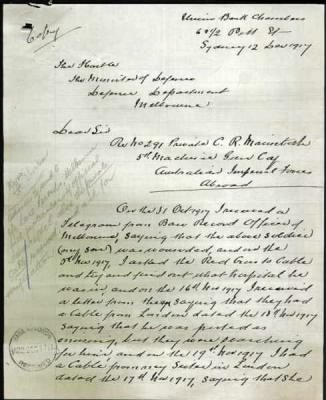 Copy
Union Bank Chambers
68½ Pitt St
Sydney 12 Dec 1917
The Honble
The Minister of Defence
Defence Department
Melbourne
Dear Sir
Re No 291 Private C. R. Macintosh
5th Machine Gun Coy
Australian Imperial Forces
Abroad
On the 31 Oct 1917 I received a
Telegram from Base Record Office
Melbourne, saying that the above soldier
(my son) was wounded, and on the
5th Nov 1917, I asked the Red Cross to Cable
and try and find out what hospital he
was in, and on the 16th Nov 1917 I received
a letter from them saying that they had
a Cable from London dated the 13th Nov 1917
saying that he was posted as
missing, but they were searching
for him, and on the 19th Nov 1917 I had
a Cable from my Sister in London
dated the 17th Nov 1917, saying that she